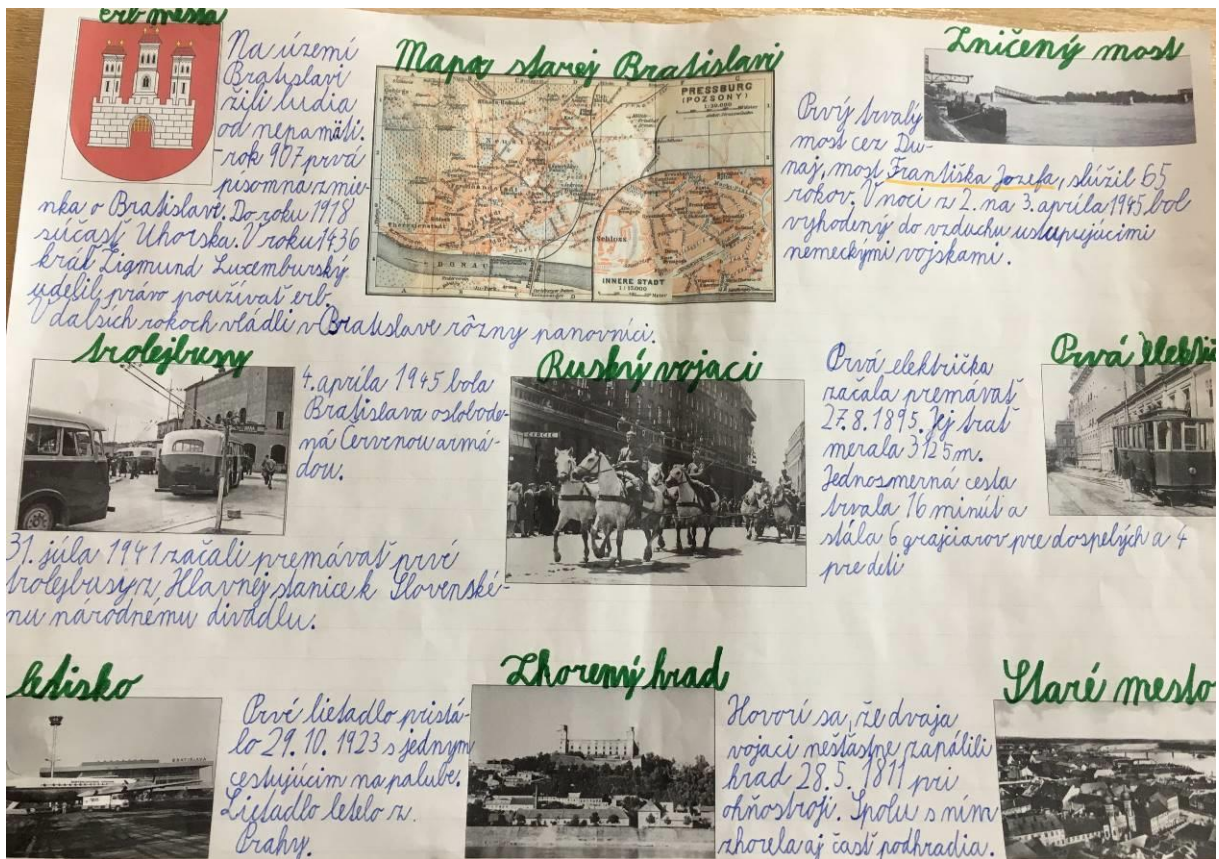 erb mesta
Na území
Bratislavi
žili ľudia
od nepamäti.
-rok 907 prvá
písomná zmie-
nka o Bratislave. Do roku 1918
súčasť Uhorska. V roku 1436
kráľ Žigmund Luxemburský
udelil právo používať erb.
V ďalších rokoch vládli v Bratislave rôzny panovníci.
Mapa starej Bratislavi
PRESSBURG
(POZSONY)
Schloss
DONAU
INNERE STADT
Zničený most
Prvý trvalý
most cez Du-
naj, most Františka Jozefa, slúžil 65
rokov. V noci z 2. na 3. apríla 1945 bol
vyhodený do vzduchu ustupujúcimi
nemeckými vojskami.
trolejbusy
31. júla 1941 začali premávať prvé
trolejbusy z Hlavnej stanice k Slovenské-
mu národnému divadlu.
Ruský vojaci
4. apríla 1945 bola
Bratislava oslobode-
ná Červenou armá-
dou.
Prvá elektri
Prvá električka
začala premávať
27. 8. 1895. Jej trať
merala 3125 m.
Jednosmerná cesta
trvala 16 minút a
stála 6 grajciarov pre dospelých a 4
pre deti
letisko
BRATISLAVA
Prvé lietadlo pristá-
lo 29. 10. 1923 s jedným
cestujúcim na palube.
Lietadlo letelo z
Prahy.
Zhorený hrad
Hovorí sa, že dvaja
vojaci nešťastne zapálili
hrad 28. 5. 1811 pri
ohňostroji. Spolu s ním
zhorela aj časť podhradia.
Staré mesto